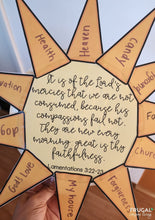 Heaven
Health
Candy
Family
Food
Church
Forgiveness
My home
God's Love
Gap
It is of the Lord's
mercies that we are not
consumed, because his
compassions fail not.
They are new every
morning: great is thy
faithfulness.
Lamentations 3:22-23
FRUGAL